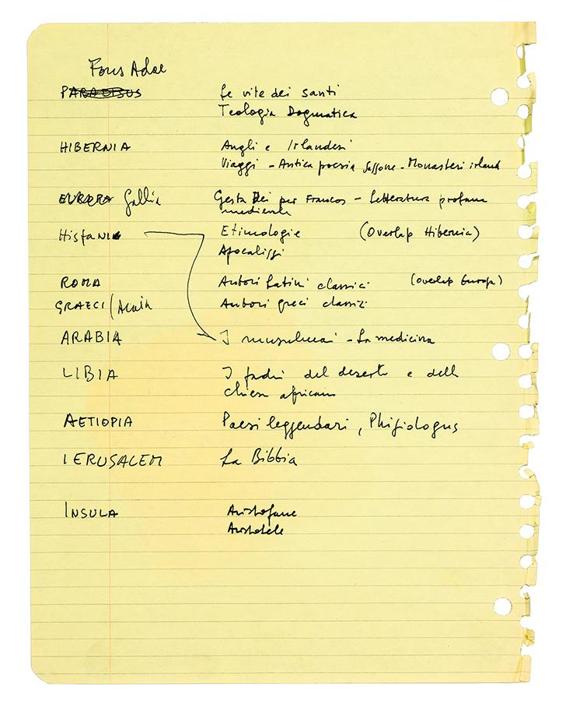 Fons Adae
PARADISUS Le vite dei santi
Teologia Dogmatica
HIBERNIA Angli e Irlandesi
Viaggi - Antica poesia Sassone - Monasteri irland
EUROPA Gallia Gesta Dei per Francos - Letteratura profana
medievale
HISPANIA Etimologie (Overlap Hibernia)
Apocalissi
ROMA Autori latini classici (overlap Europa)
GRAECI / Autori greci classici
ARABIA I musulmani - La medicina
LIBIA I padri del deserto e della
chiesa africana
AETIOPIA Paesi leggendari, Phisiologus
IERUSALEM La Bibbia
INSULA Aristofane
Aristotele